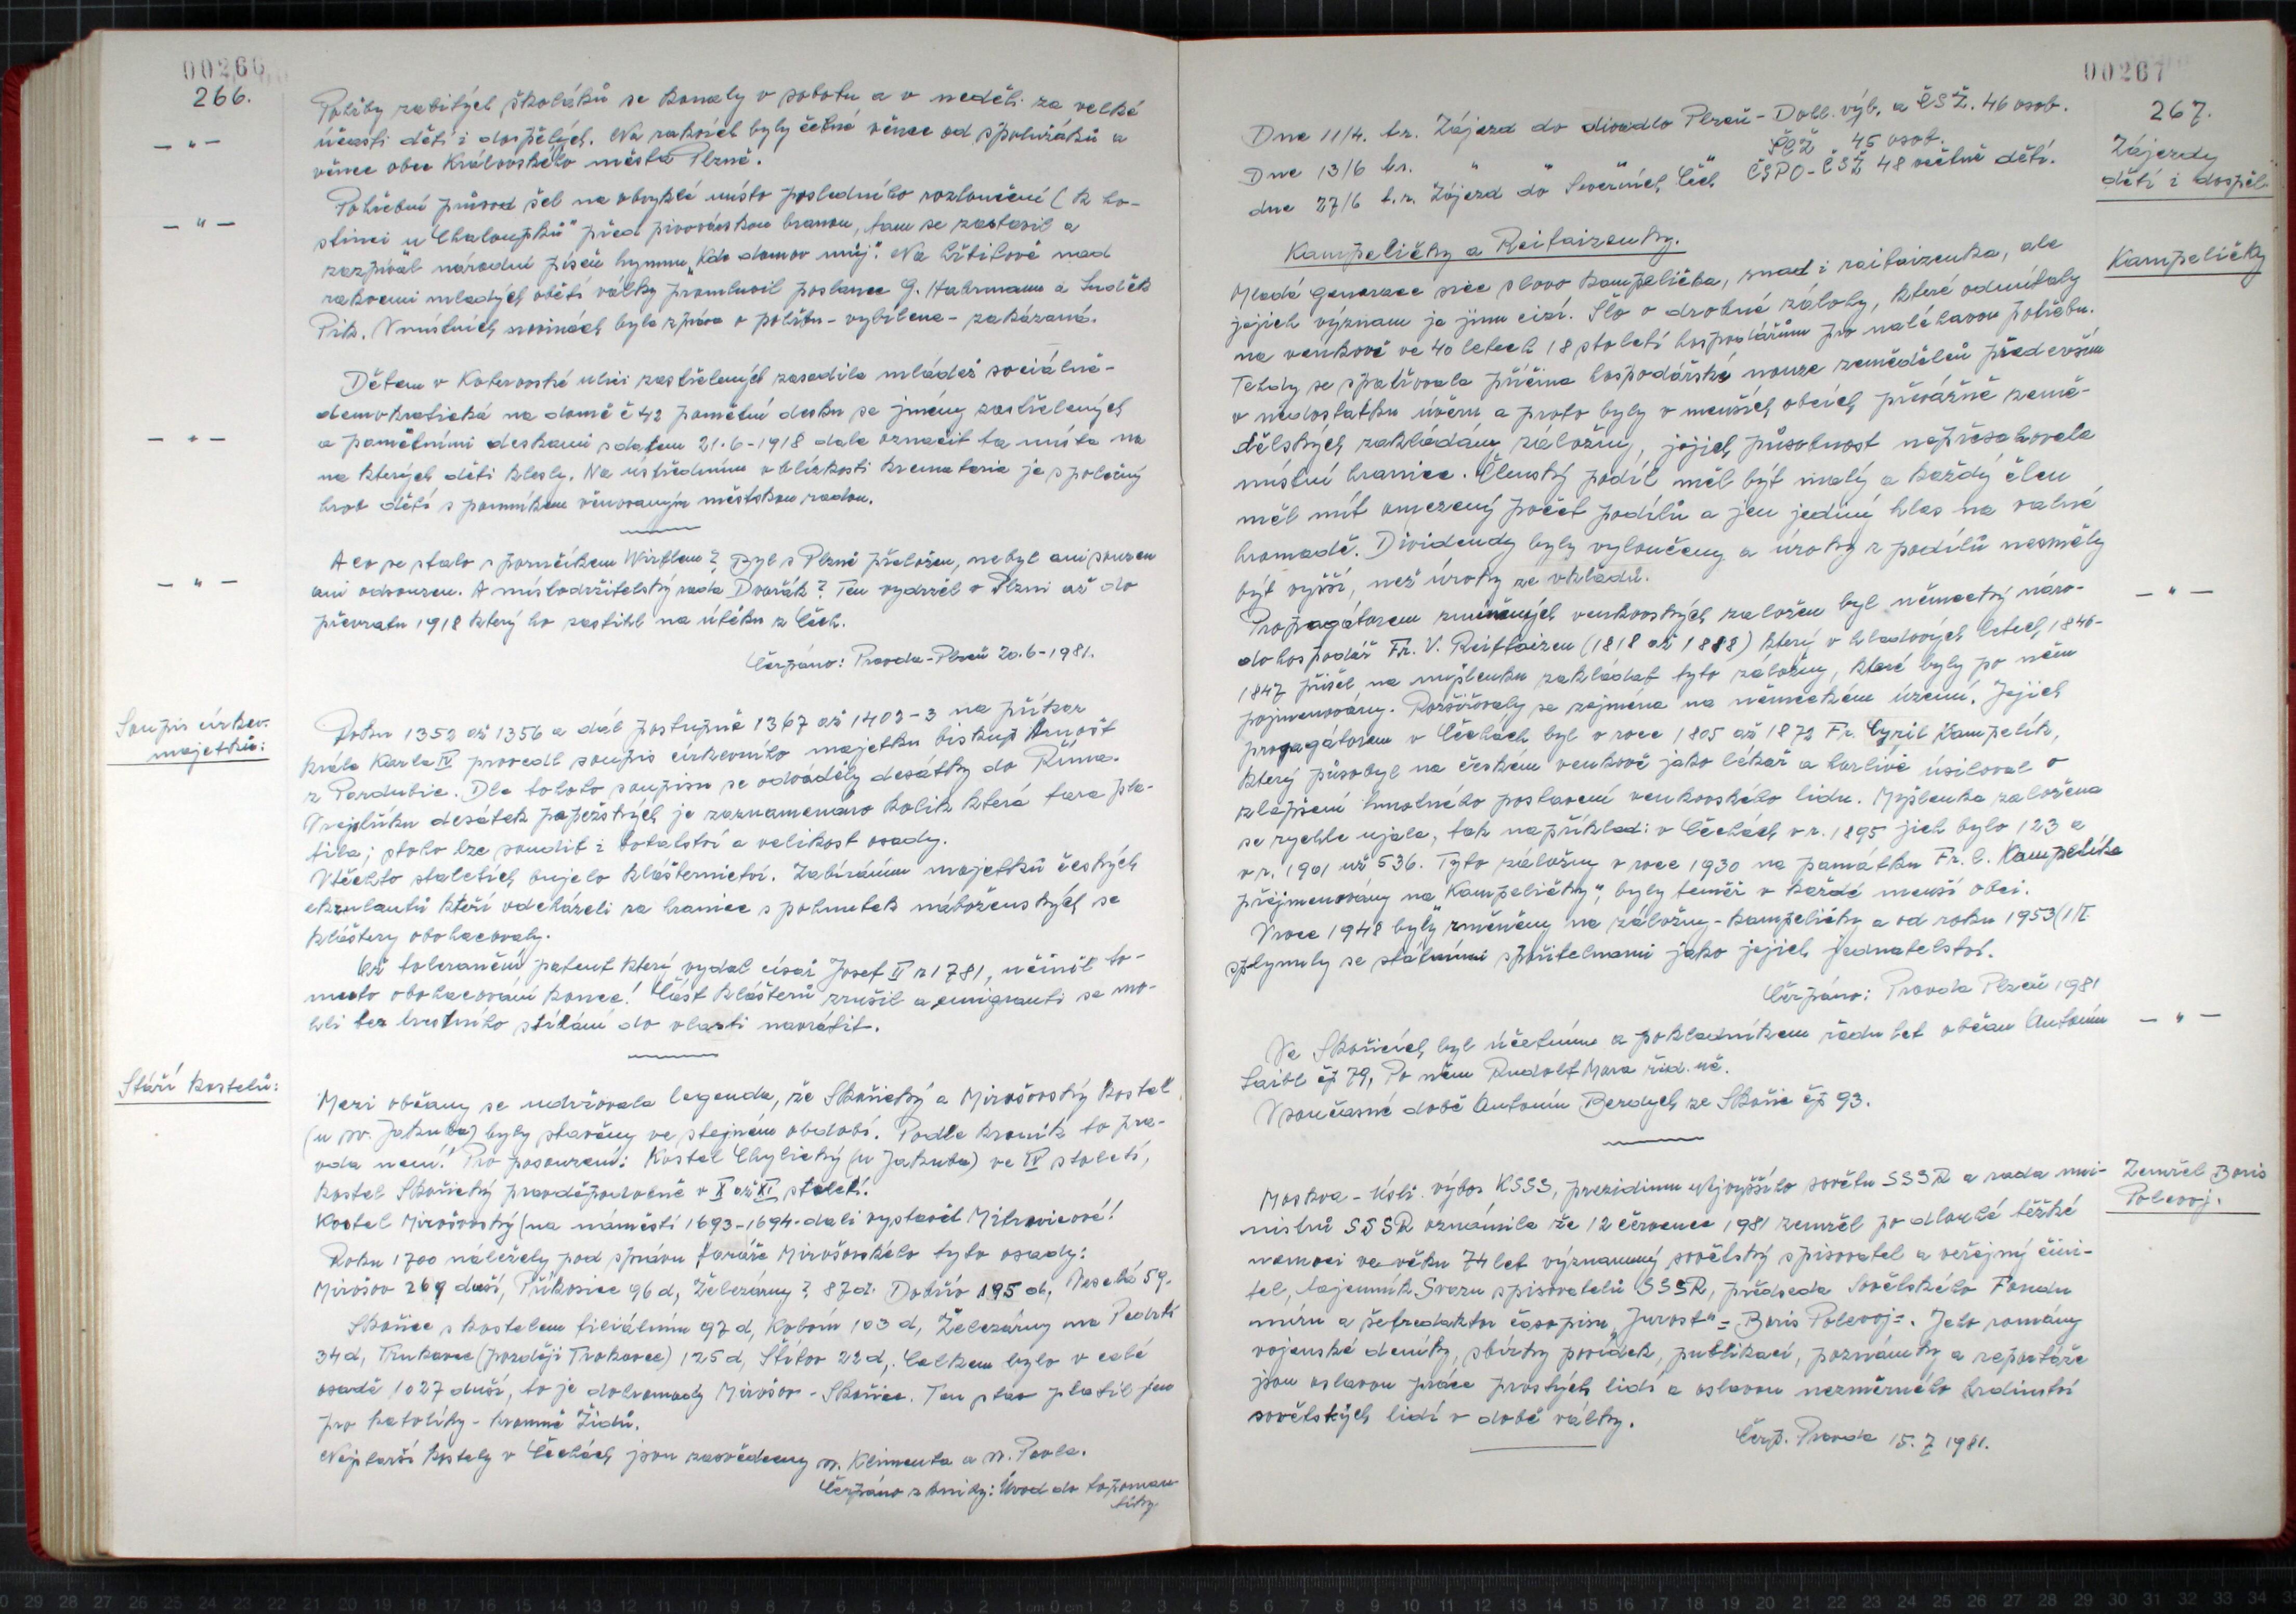 00266
266.
Pohřby zabitých školáků se konaly v sobotu a v neděli za velké
účasti dětí i dospělých. Na rakvích byly četné věnce od spolužáků a
věnec obce Královského města Plzně.
Pohřební průvod šel na obvyklé místo posledního rozloučení (k ho-
stinci u Chaloupků" před pivovárskou branou, tam se zastavil a
zazpíval národní píseň hymnu „Kde domov můj". Na hřbitově nad
rakvemi mladých obětí války promluvil poslanec G. Habrmann a Luděk
Pik. V místních novinách byla zpráva o pohřbu - vybílena - zakázaná.
Dětem v Koterovské ulici zastřelených zasadila mládež sociálně-
demokratická na domě č 42 pamětní desku se jmény zastřelených
a pamětními deskami s datem 21.6-1918 dala označit ta místa na
na kterých děti klesly. Na ústředním v blízkosti krematoria je společný
hrob dětí s pomníkem věnovaným městskou radou.
A co se stalo s poručíkem Wirtlem? Byl s Plzně přeložen, nebyl ani souzen
ani odsouzen. A místodržitelský rada Dvořák? Ten vydržel v Plzni až do
převratu 1918 který ho zastihl na útěku z Čech.
Čerpáno: Pravda-Plzeň 20.6-1981.
Soupis církev.
majetků:
Roku 1352 až 1356 a dál postupně 1367 až 1402-3 na příkaz
krále Karla IV provedl soupis církevního majetku biskup Arnošt
z Pardubic. Dle tohoto soupisu se odváděly desátky do Říma.
V rejstříku desátek papežských je zaznamenáno kolik která fara pla-
tila; z toho lze soudit i bohatství a velikost osady.
V těchto staletích bujelo klášternictví. Zabíráním majetků českých
exulantů kteří odcházeli za hranice s pohnutek náboženských se
kláštery obohacovaly.
Až toleranční patent který vydal císař Josef II r 1781, učinil to-
muto obohacování konec! Část klášterů zrušil a emigranti se mo-
hli bez trestního stíhání do vlasti navrátit.
Stáří kostelů:
Mezi občany se udržovala legenda, že Skořický a Mirošovský kostel
(u sv. Jakuba) byly stavěny ve stejném období. Podle kronik to pra-
vda není! Pro posouzení: Kostel Chylický (u Jakuba) ve IV století,
kostel Skořický pravděpodobně v X až XI století.
Kostel Mirošovský (na náměstí 1693-1694. dali vystavět Mitrovicové!
Roku 1700 náležely pod správu faráře Mirošovského tyto osady:
Mirošov 269 duší, Příkosice 96 d, Železárny? 87 d. Dobřív 195 d, Veselá 59.
Skořice s kostelem filiálním 97 d, Kolvín 103 d, Železárny na Padrti
34 d, Trukavec (později Trokavec) 125 d, Štítov 22 d, Celkem bylo v celé
osadě 1027 duší, to je dohromady Mirošov-Skořice. Ten stav platil jen
pro katolíky - kromně Židů.
Nejstarší kostely v Čechách jsou zasvěceny sv. Klimenta a sv. Pavla.
Čerpáno z knihy: Úvod do toponoma-
tiky.
00267
267.
Dne 11/4. t.r. Zájezd do divadlo Plzeň - Dohl. výb. a ČSŽ. 46 osob.
Dne 13/6 t.r. " " " " ČSŽ 45 osob.
dne 27/6 t.r. Zájezd do Severních Čech ČSPO-ČSŽ 48 včetně dětí.
Zájezdy
dětí i dospěl.
Kampeličky a Reifaizenky.
Kampeličky
Mladá generace sice slovo kampelička, snad i raifaizenka, ale
jejich význam je jim cizí. Šlo o drobné zálohy, které odmítaly
na venkově ve 40 letech 18 století hospodářům pro naléhavou potřebu.
Tehdy se spatřovala příčina hospodářské nouze zemědělců především
v nedostatku úvěru a proto byly v menších obcích převážně země-
dělských zakládány záložny, jejich působnost nepřesahovala
místní hranice. Členský podíl měl být malý a každý člen
měl mít omezený počet podílů a jen jediný hlas na valné
hromadě. Dividendy byly vyloučeny a úroky z podílů nesměly
být vyšší, než úroky ze vkladů.
Propagátorem zmíněných venkovských záložen byl německý náro-
dohospodář Fr. V. Reiffaizen (1818 až 1888) který v hladových letech 1846-
1847 přišel na myšlenku zakládat tyto záložny, které byly po něm
pojmenovány. Rozšiřovaly se zejména na německém území. Jejich
propagátorem v Čechách byl v roce 1805 až 1872 Fr. Cyril Kampelík,
který působyl na českém venkově jako lékař a horlivě úsiloval o
zlepšení hmotného postavení venkovského lidu. Myšlenka záložena
se rychle ujala, tak například: v Čechách v r. 1895 jich bylo 123 a
v r. 1901 už 536. Tyto záložny v roce 1930 na památku Fr. C. Kampelíka
přejmenovány na „Kampeličky", byly téměř v každé menší obci.
V roce 1948 byly změněny na záložny-kampeličky a od roku 1953 (1/I
splynuly se státními spořitelnami jako jejich jednatelství.
Čerpáno: Pravda Plzeň 1981
Ve Skořicích byl účetním a pokladníkem řadu let občan Antonín
Saibl čp 79, Po něm Rudolf Mara říd. uč.
V současné době Antonín Berdych ze Skořic čp 93.
Zemřel Boris
Polevoj.
Moskva - Ústř. výbor KSSS, prezidium Nejvyššího sovětu SSSR a rada mi-
nistrů SSSR oznámila že 12 července 1981 zemřel po dlouhé těžké
nemoci ve věku 74 let významný sovětský spisovatel a veřejný čini-
tel, tajemník Svazu spisovatelů SSSR, předseda Sovětského Fondu
míru a šefredaktor časopisu „Junost" = Boris Polevoj =. Jeho romány
vojenské deníky, sbírky povídek, publikací, poznámky a reportáže
jsou oslavou práce prostých lidí a oslavou nezměrného hrdinství
sovětských lidí v době války.
Čerp. Pravda 15.7 1981.